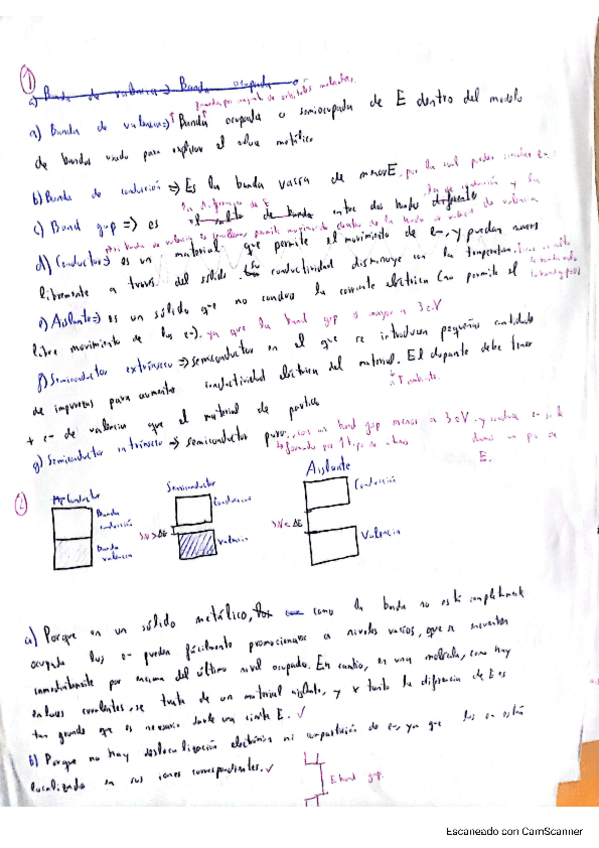 ①
a) Banda de valencia => Banda ocupada o
formada por conjunto de orbitales moleculares
a) Banda de valencia => Banda ocupada o semiocupada de E dentro del modelo
de bandas usado para explicar el enlace metálico
b) Banda de conducción => Es la banda vacía de mayor E. por la cual pueden circular e-
c) Band gap => es el salto de banda entre dos bandas diferente
la diferencia de E
d) Conductor => es un material que permite el movimiento de e-, y puedan moverse
libremente a través del sólido. conductividad disminuye con la temperatura.
e) Aislante => es un sólido que no conduce la corriente eléctrica (no permite el
libre movimiento de los e-). ya que la band gap es mayor a 3 eV
f) Semiconductor extrínseco => semiconductor en el que se introducen pequeñas cantidades
de impurezas para aumentar conductividad eléctrica del material. El dopante debe tener
+ e- de valencia que el material de partida
g) Semiconductor intrínseco => semiconductor puro, con un band gap menor a 3 eV. y conduce e- si le
formado por 1 tipo de
damos un poco de
E.
②
Conductor
Semiconductor
Aislante
Banda conducción
Conducción
Conducción
3eV > ΔE
3eV < ΔE
Banda valencia
Valencia
Valencia
a) Porque en un sólido metálico, como la banda no está completamente
ocupada los e- pueden fácilmente promocionarse a niveles vacíos, que se encuentran
inmediatamente por encima del último nivel ocupado. En cambio, en una molécula, como hay
enlaces covalentes, se trata de un material aislante, y x tanto la diferencia de E es
tan grande que es necesario darle una cierta E. ✓
b) Porque no hay deslocalización electrónica ni compartición de e-, ya que los e- están
localizados en sus iones correspondientes. ✓
E band gap.
Escaneado con CamScanner